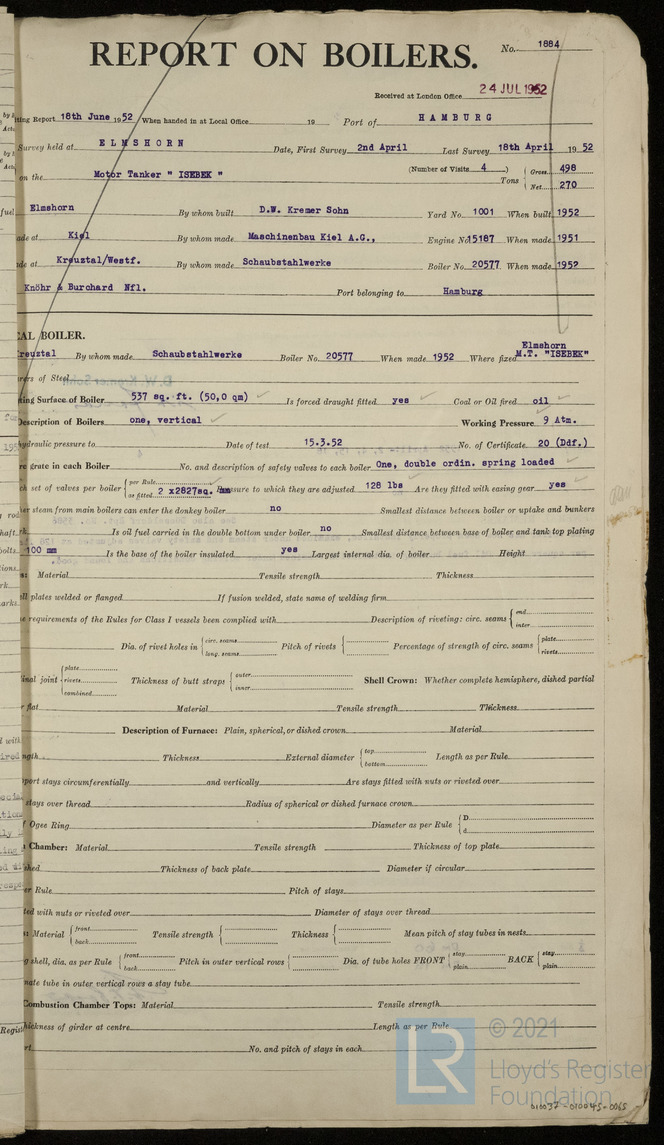 REPORT ON BOILERS.
No. 1884
Received at London Office 24 JUL 1952
ting Report 18th June 1952 When handed in at Local Office 19 Port of HAMBURG
Survey held at ELMSHORN Date, First Survey 2nd April Last Survey 18th April 1952
on the Motor Tanker " ISEBEK " (Number of Visits 4 ) Tons Gross 498 Net 270
Elmshorn By whom built D.W. Kremer Sohn Yard No. 1001 When built 1952
de at Kiel By whom made Maschinenbau Kiel A.G., Engine No 15187 When made 1951
de at Kreuztal/Westf. By whom made Schaubstahlwerke Boiler No. 20577 When made 1952
Knöhr & Burchard Nfl. Port belonging to Hamburg
CAL BOILER.
Kreuztal By whom made Schaubstahlwerke Boiler No. 20577 When made 1952 Where fixed Elmshorn M.T. "ISEBEK"
rers of Steel
ting Surface of Boiler 537 sq. ft. (50,0 qm) Is forced draught fitted yes Coal or Oil fired oil
Description of Boilers one, vertical Working Pressure 9 Atm.
hydraulic pressure to Date of test 15.3.52 No. of Certificate 20 (Ddf.)
re grate in each Boiler No. and description of safety valves to each boiler One, double ordin. spring loaded
ch set of valves per boiler per Rule as fitted 2 x2827sq. mm Pressure to which they are adjusted 128 lbs Are they fitted with easing gear yes
er steam from main boilers can enter the donkey boiler no Smallest distance between boiler or uptake and bunkers
rk Is oil fuel carried in the double bottom under boiler no Smallest distance between base of boiler and tank top plating
100 mm Is the base of the boiler insulated yes Largest internal dia. of boiler Height
: Material Tensile strength Thickness
ll plates welded or flanged If fusion welded, state name of welding firm
e requirements of the Rules for Class I vessels been complied with Description of riveting: circ. seams end inter
Dia. of rivet holes in circ. seams long. seams Pitch of rivets Percentage of strength of circ. seams plate rivets
inal joint plate rivets combined Thickness of butt straps outer inner Shell Crown: Whether complete hemisphere, dished partial
r flat Material Tensile strength Thickness
Description of Furnace: Plain, spherical, or dished crown Material
ngth Thickness External diameter top bottom Length as per Rule
port stays circumferentially and vertically Are stays fitted with nuts or riveted over
stays over thread Radius of spherical or dished furnace crown
f Ogee Ring Diameter as per Rule D d
Chamber: Material Tensile strength Thickness of top plate
shed Thickness of back plate Diameter if circular
er Rule Pitch of stays
ted with nuts or riveted over Diameter of stays over thread
: Material front back Tensile strength Thickness Mean pitch of stay tubes in nests
g shell, dia. as per Rule front back Pitch in outer vertical rows Dia. of tube holes FRONT stay plain BACK stay plain
nate tube in outer vertical rows a stay tube
Combustion Chamber Tops: Material Tensile strength
hickness of girder at centre Length as per Rule
rt No. and pitch of stays in each
LR © 2021
Lloyd's Register
Foundation
010037-010045-0065